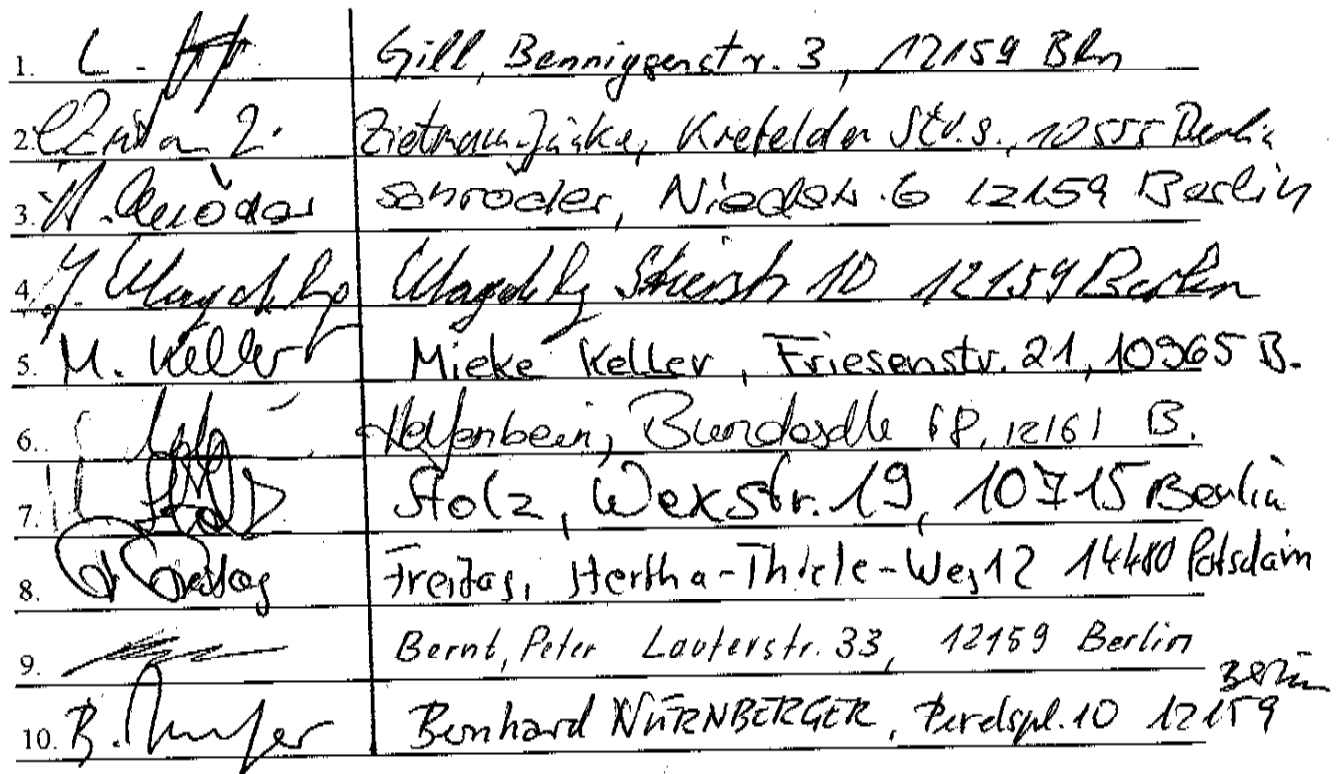 1. L. Gill, Bennigsenstr. 3, 12159 Bln
2. Zietmann-Jänke, Krefelder Str. 8, 10555 Berlin
3. A. Schröder schröder, Niedstr. 6 12159 Berlin
4. Stierstr 10 12159 Berlin
5. M. Keller Mieke Keller, Friesenstr. 21, 10965 B.
6. Helfenbein, Bundesallee 68, 12161 B.
7. Stolz Stolz, Wexstr. 19, 10715 Berlin
8. Freitag Freitag, Hertha-Thiele-Weg 12 14480 Potsdam
9. Bernt, Peter Lauterstr. 33, 12159 Berlin
10. B. Bernhard NÜRNBERGER, Perelspl. 10 12159 Berlin